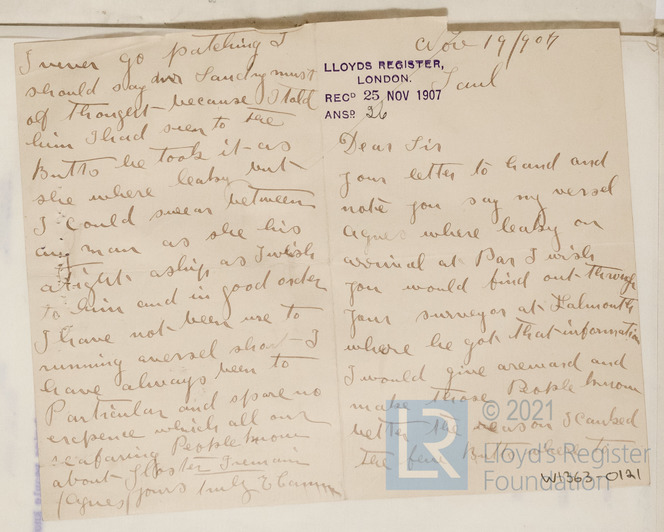 Nov 19/1907
LLOYDS REGISTER,
LONDON.
RECD 25 NOV 1907
ANSD 26
Dear Sir
your letter to hand and
note you say my vessel
Agnes where leaky on
arrival at Par I wish
you would find out through
your surveyor at Falmouth
where he got that information
I would give areward and
make those People know
better the reason I caulked
the few Butts where
I never go patching I
should say Landry must
of thought because I told
him I had seen to the
Butts he took it as
she where leaky but
I could swear between
any man as she his
atight aship as I wish
to him and in good order
I have not been use to
running avessel short I
have always been to
Particular and spare no
expence which all our
seafaring People know
about I remain
(Agnes) yours truly
© 2021
LR
Lloyd's Register
Foundation
W1363-0121